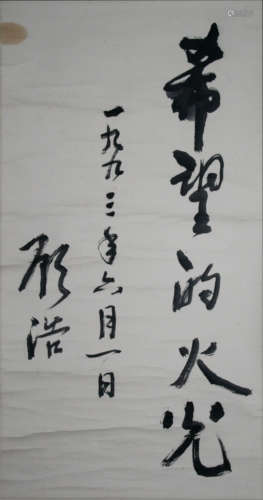 希望的火光
一九九三年六月一日
顾浩